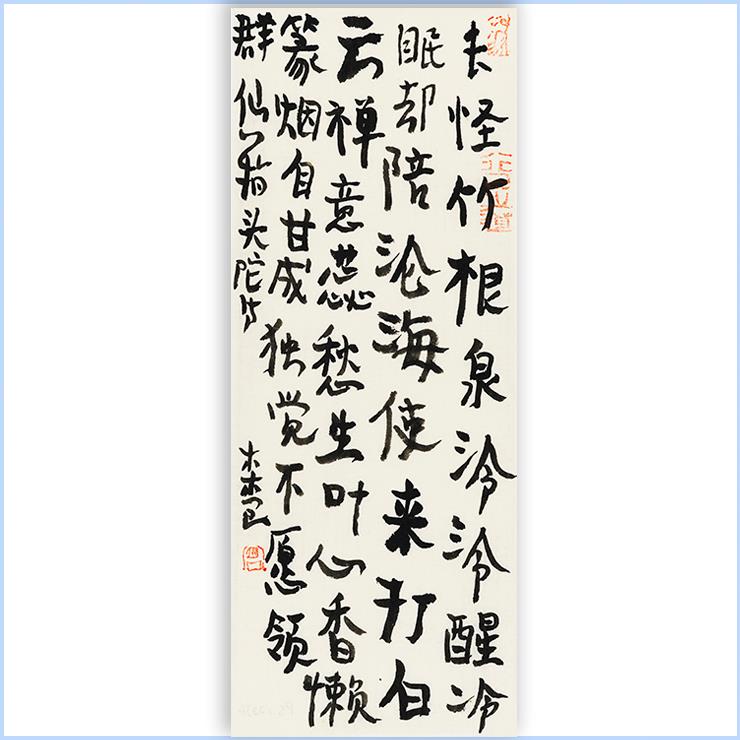 怪竹根泉泠泠醒冷
眠却陪沧海使来打白
云禅意蕊愁生叶心香懒
篆烟自甘成独觉不愿领
群仙 八指头陀诗